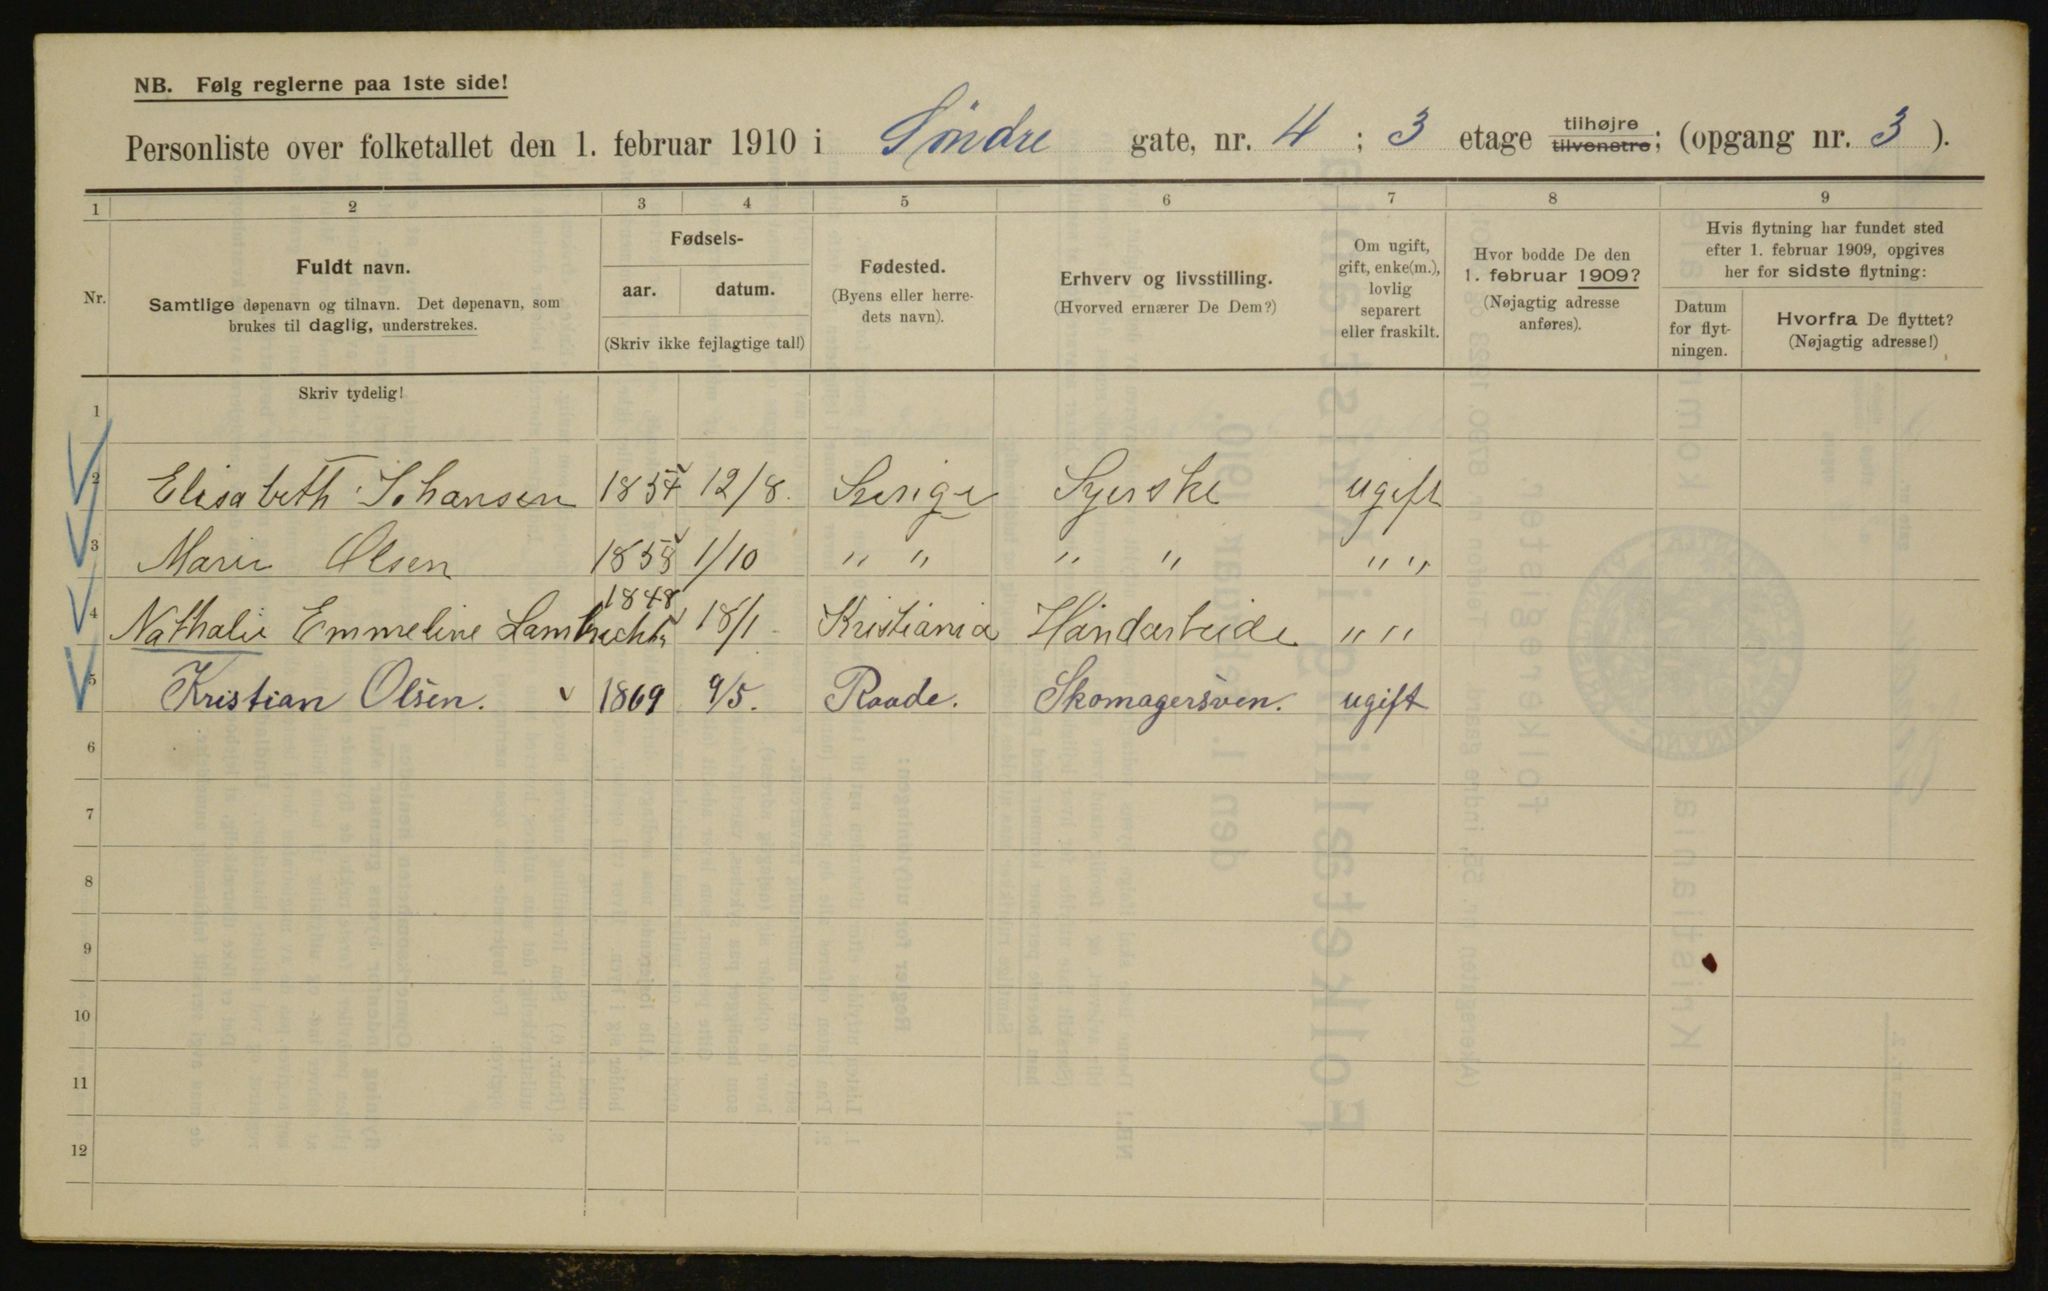 NB. Følg reglerne paa 1ste side!
Personliste over folketallet den 1. februar 1910 i Søndre gate, nr. 4 ; 3 etage tilhøjre tilvenstre; (opgang nr. 3 ).
1 2 3 4 5 6 7 8 9
Nr.
Fuldt navn.
Samtlige døpenavn og tilnavn. Det døpenavn, som
brukes til daglig, understrekes.
Fødsels-
aar. datum.
(Skriv ikke fejlagtige tal!)
Fødested.
(Byens eller herre-
dets navn).
Erhverv og livsstilling.
(Hvorved ernærer De Dem?)
Om ugift,
gift, enke(m.),
lovlig
separert
eller fraskilt.
Hvor bodde De den
1. februar 1909?
(Nøjagtig adresse
anføres).
Hvis flytning har fundet sted
efter 1. februar 1909, opgives
her for sidste flytning:
Datum
for flyt-
ningen.
Hvorfra De flyttet?
(Nøjagtig adresse!)
Skriv tydelig!
1
2 Elisabeth Johansen 1854 12/8. Sverige Syerske ugift
3 Marie Olsen 1858 1/10 " " " " " "
4 Nathalie Emmeline Lambrechts 1848 18/1 Kristiania Håndarbeide " "
5 Kristian Olsen. 1869 9/5. Raade. Skomagersven. ugift
6
7
8
9
10
11
12